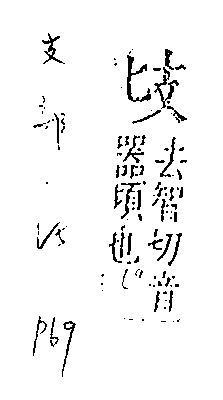 去智切音
器頃也
支部
P69